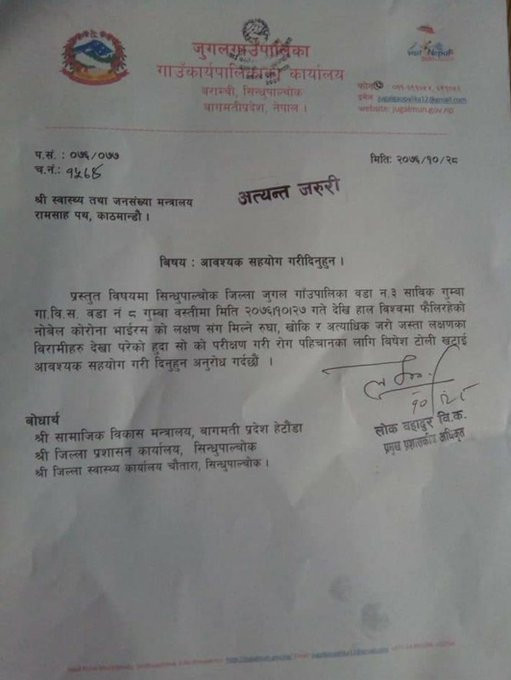 जुगल गाउँपालिका
गाउँकार्यपालिकाको कार्यालय
बराम्ची, सिन्धुपाल्चोक
बागमती प्रदेश, नेपाल ।
फोन
इमेल
website: jugalmun.gov.np
प.सं. : ०७६/०७७
च.नं.: १५६५
मिति: २०७६/१०/२८
अत्यन्त जरुरी
श्री स्वास्थ्य तथा जनसंख्या मन्त्रालय
रामसाह पथ, काठमान्डौ ।
विषय : आवश्यक सहयोग गरीदिनुहुन ।
प्रस्तुत विषयमा सिन्धुपाल्चोक जिल्ला जुगल गाँउपालिका वडा न.३ साविक गुम्बा
गा.वि.स. वडा नं ८ गुम्बा वस्तीमा मिति २०७६।१०।२७ गते देखि हाल विश्वमा फैलिरहेको
नोबेल कोरोना भाईरस को लक्षण संग मिल्ने रुघा, खोकि र अत्याधिक जरो जस्ता लक्षणका
विरामीहरु देखा परेको हुदा सो को परीक्षण गरी रोग पहिचानका लागि बिषेश टोली खटाई
आवश्यक सहयोग गरी दिनुहुन अनुरोध गर्दछौ ।
१०/२८
लोक बहादुर वि.क.
प्रमुख प्रशासकीय अधिकृत
बोधार्थ
श्री सामाजिक विकास मन्त्रालय, बागमती प्रदेश हेटौंडा
श्री जिल्ला प्रशासन कार्यालय, सिन्धुपाल्चोक ।
श्री जिल्ला स्वास्थ्य कार्यालय चौतारा, सिन्धुपाल्चोक ।